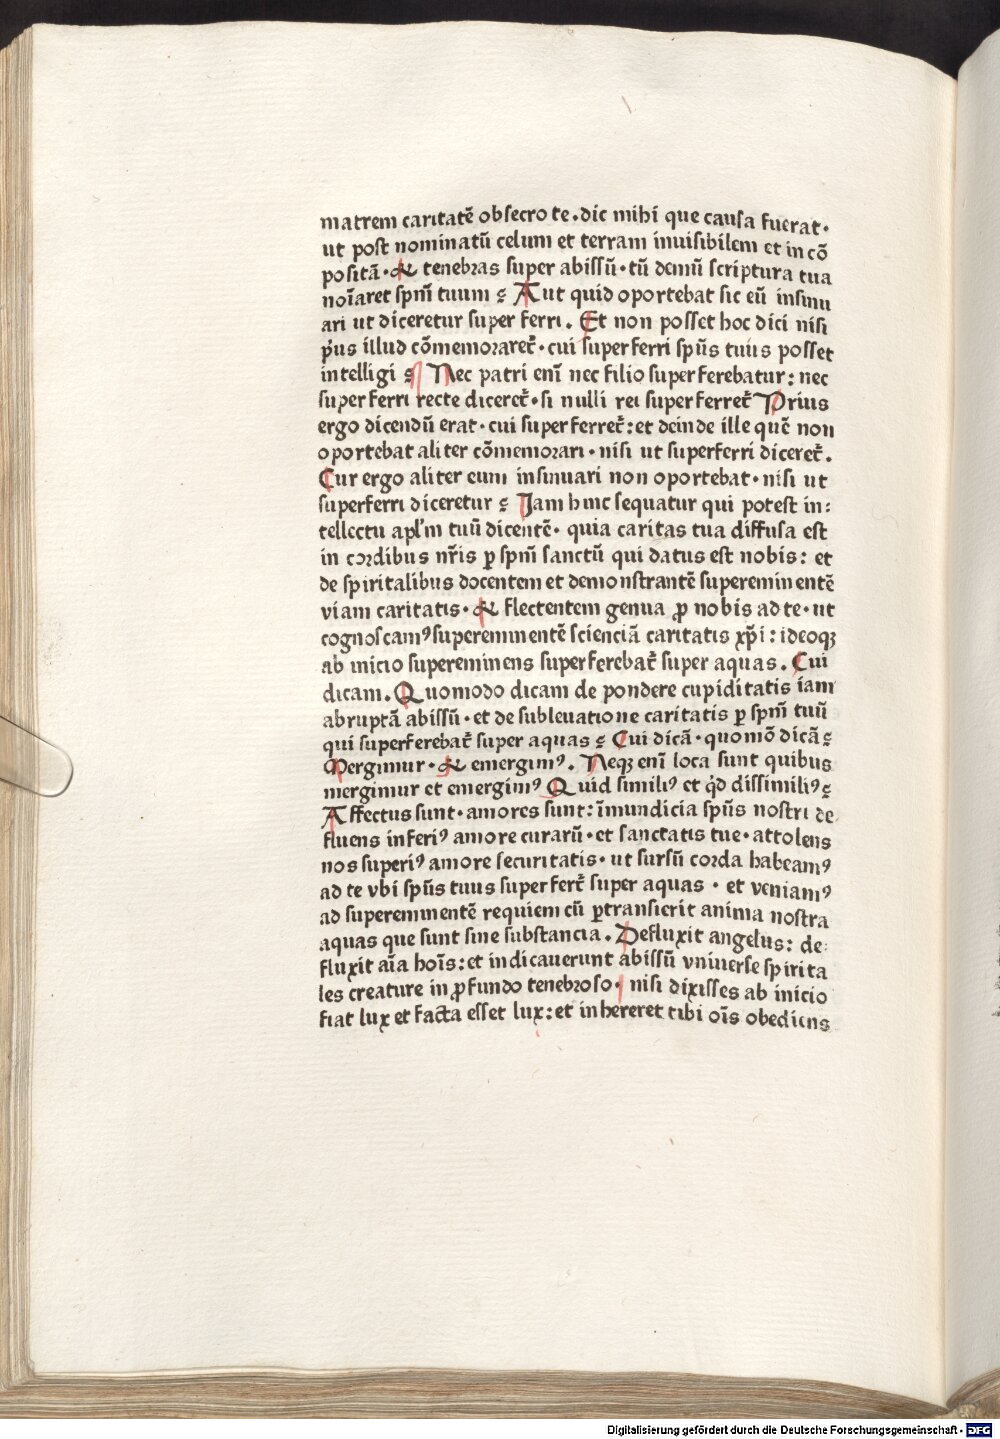 matrem caritatē obsecro te. dic mihi que causa fuerat.
ut post nominatū celum et terram inuisibilem et incō
positā. & tenebras super abissū. tū demū scriptura tua
noīaret spm̄ tuum ? Aut quid oportebat sic eū insinu
ari ut diceretur super ferri. Et non posset hoc dici nisi
pꝰus illud cōmemoraret᷑. cui superferri spūs tuus posset
intelligi ? Nec patri enī nec filio superferebatur: nec
superferri recte diceret᷑. si nulli rei superferret᷑ Prius
ergo dicendū erat. cui superferret᷑: et deinde ille quē non
oportebat aliter cōmemorari. nisi ut superferri diceret᷑.
Cur ergo aliter eum insinuari non oportebat. nisi ut
superferri diceretur ? Jam hinc sequatur qui potest in:
tellectu apl'm tuū dicentē. quia caritas tua diffusa est
in cordibus nr̄is ꝑ spm̄ sanctū qui datus est nobis: et
de spiritalibus docentem et demonstrantē supereminentē
viam caritatis. & flectentem genua ꝓ nobis ad te. ut
cognoscamꝰ supereminentē scienciā caritatis xp̄i: ideoqꝫ
ab inicio supereminens superferebat᷑ super aquas. Cui
dicam. Quomodo dicam de pondere cupiditatis iam
abruptā abissū. et de subleuatione caritatis ꝑ spm̄ tuū
qui superferebat᷑ super aquas ? Cui dicā. quomō dicā ?
Mergimur. & emergimꝰ. Neqꝫ enī loca sunt quibus
mergimur et emergimꝰ Quid similiꝰ et qd̓ dissimiliꝰ ?
Affectus sunt. amores sunt: īmundicia spūs nostri de
fluens inferiꝰ amore curarū. et sanctatis tue. attolens
nos superiꝰ amore securitatis. ut sursū corda habeamꝰ
ad te vbi spūs tuus superfert᷑ super aquas. et veniamꝰ
ad supereminentē requiem cū ꝑtransierit anima nostra
aquas que sunt sine substancia. Defluxit angelus: de:
fluxit aīa hoīs: et indicauerunt abissū vniuerse spirita
les creature in ꝓfundo tenebroso. nisi dixisses ab inicio
fiat lux et facta esset lux: et inhereret tibi oīs obediens
Digitalisierung gefördert durch die Deutsche Forschungsgemeinschaft - DFG